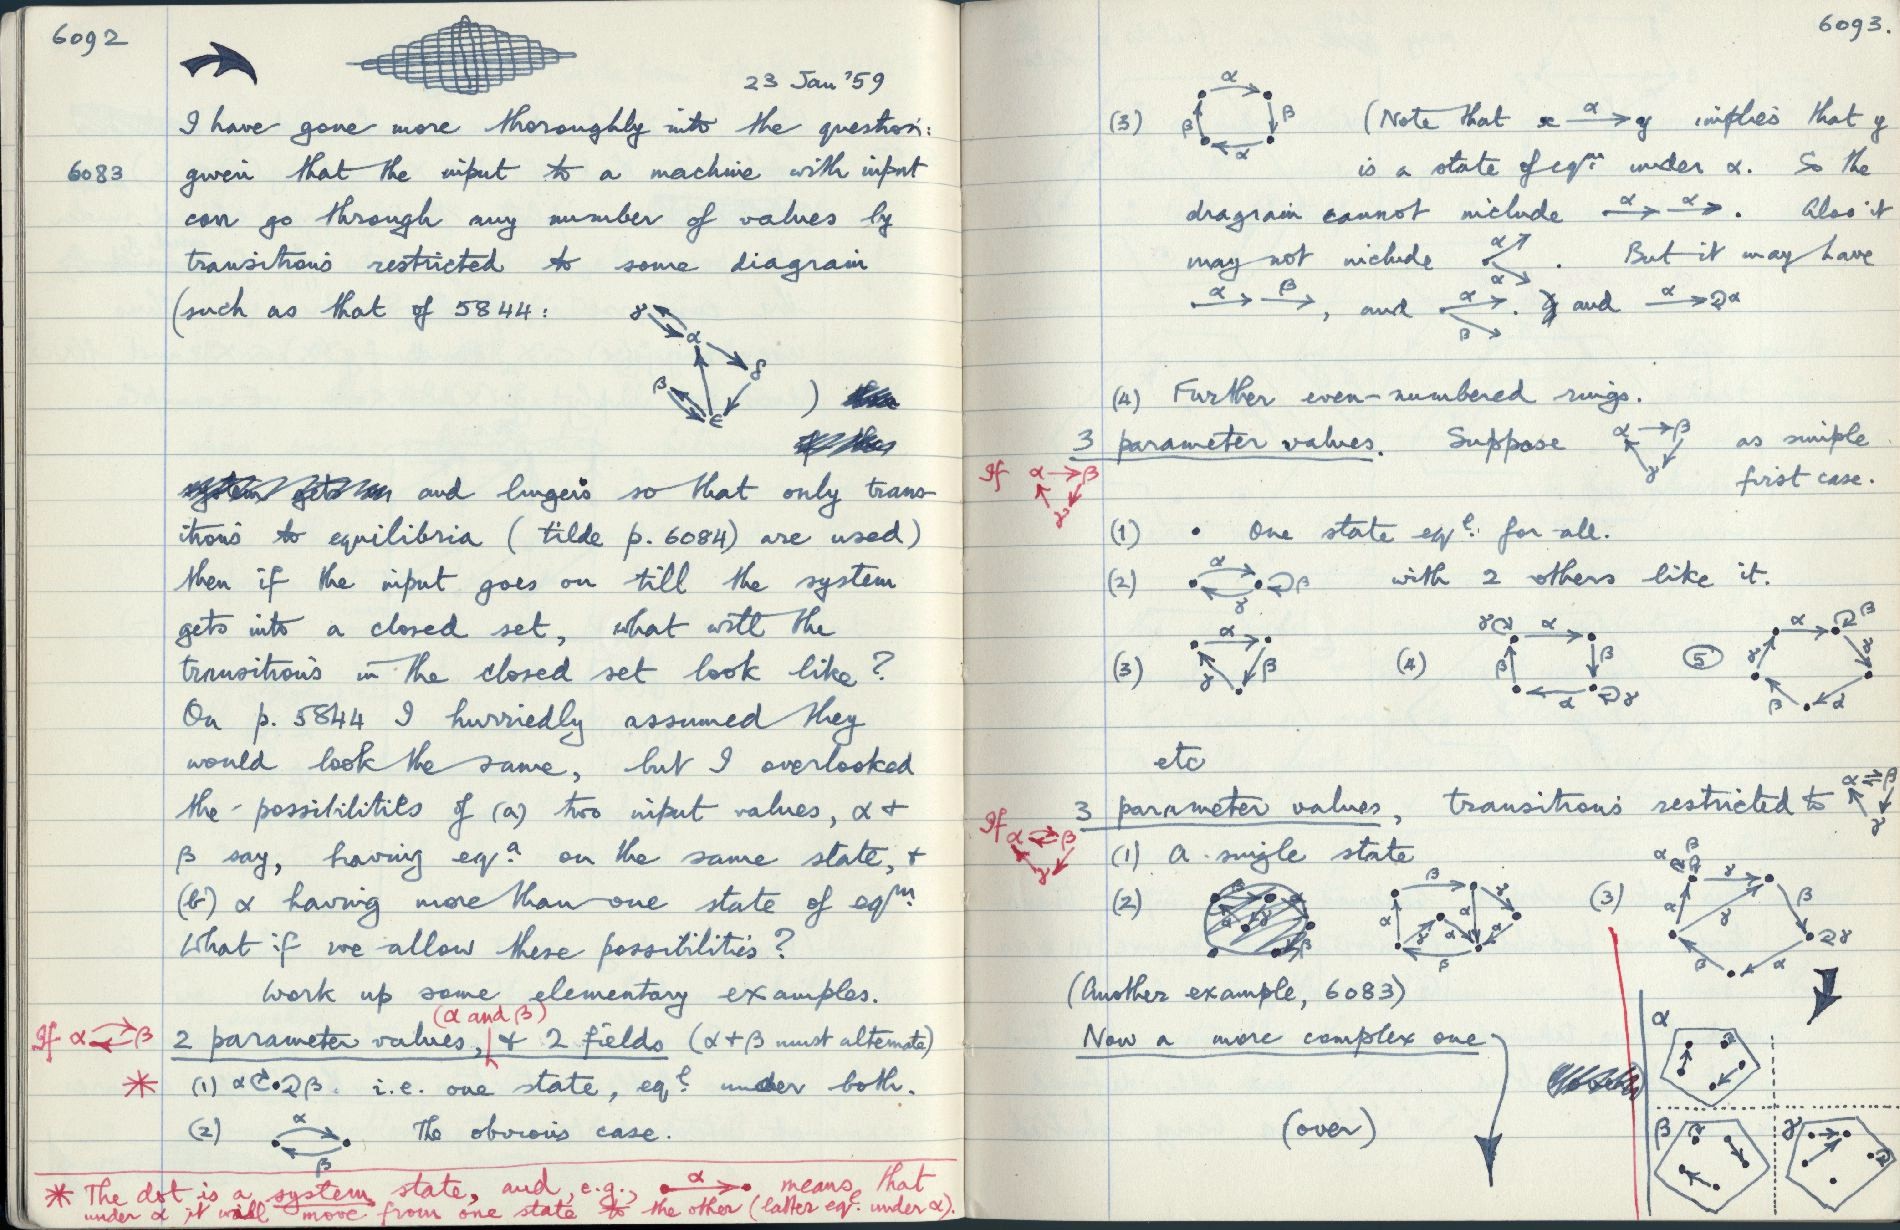 6092
23 Jan '59
I have gone more thoroughly into the question:
6083 given that the input to a machine with input
can go through any number of values by
transitions restricted to some diagram
(such as that of 5844:
γ α δ β ε )
and lingers so that only trans-
itions to equilibria (tilde p. 6084) are used)
then if the input goes on till the system
gets into a closed set, what will the
transitions in the closed set look like?
On p. 5844 I hurriedly assumed they
would look the same, but I overlooked
the possibilities of (a) two input values, α +
β say, having eqa on the same state, +
(b) α having more than one state of eqm.
What if we allow these possibilities?
Work up some elementary examples.
(α and β)
If α β 2 parameter values, + 2 fields (α + β must alternate)
* (1) α β. i.e. one state, eql under both.
(2) α β The obvious case.
* The dot is a system state, and, e.g., α means that
under α it will move from one state to the other (latter eql under α).
6093.
(3) α β α β (Note that x α→ y implies that y
is a state of eqm under α. So the
diagram cannot include α→ α→. Also it
may not include α α. But it may have
α→ β→, and α β. and α→ α
(4) Further even-numbered rings.
3 parameter values. Suppose α → β γ as simple
If α → β γ first case.
(1) • One state eql for all.
(2) α γ β with 2 others like it.
(3) α β γ (4) γ α β γ α β (5) α β α α β γ
etc
3 parameter values, transitions restricted to α ⇌ β γ
If α ⇌ β γ
(1) A single state
(2) β α γ α γ α α β (3) α β γ β γ α β α γ
(Another example, 6083)
Now a more complex one
(over)
α
β γ